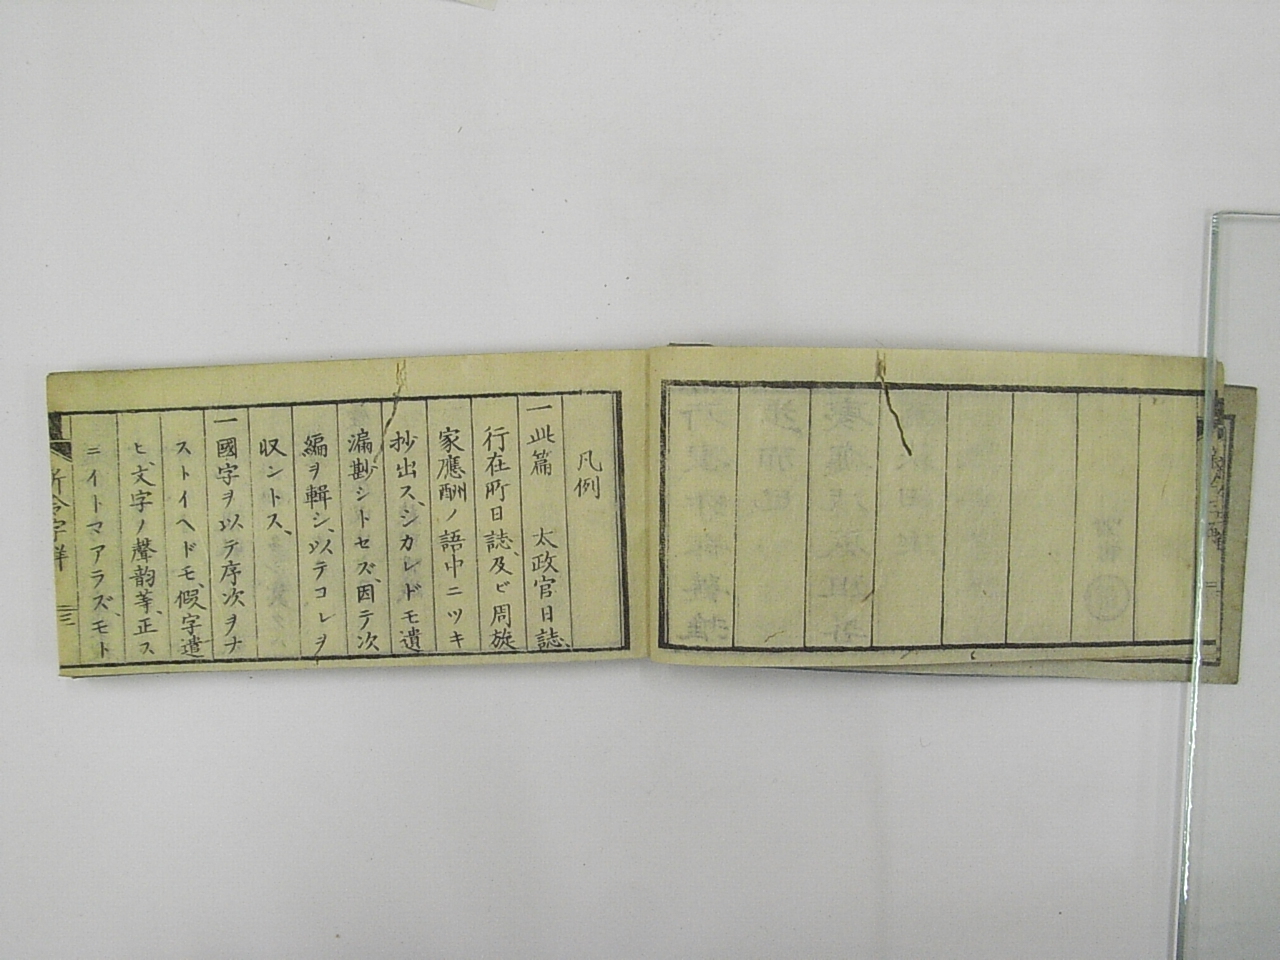 凡例
一此篇　太政官日誌、
行在所日誌、及ビ周旋
家應酬ノ語中ニツキ
抄出ス、シカレドモ遺
漏尠シトセズ、因テ次
編ヲ輯シ、以テコレヲ
収ントス、
一國字ヲ以テ序次ヲナ
ストイヘドモ、假字遣
ヒ、文字ノ聲韵䓁、正ス
ニイトマアラズ、モト
新令字解
三